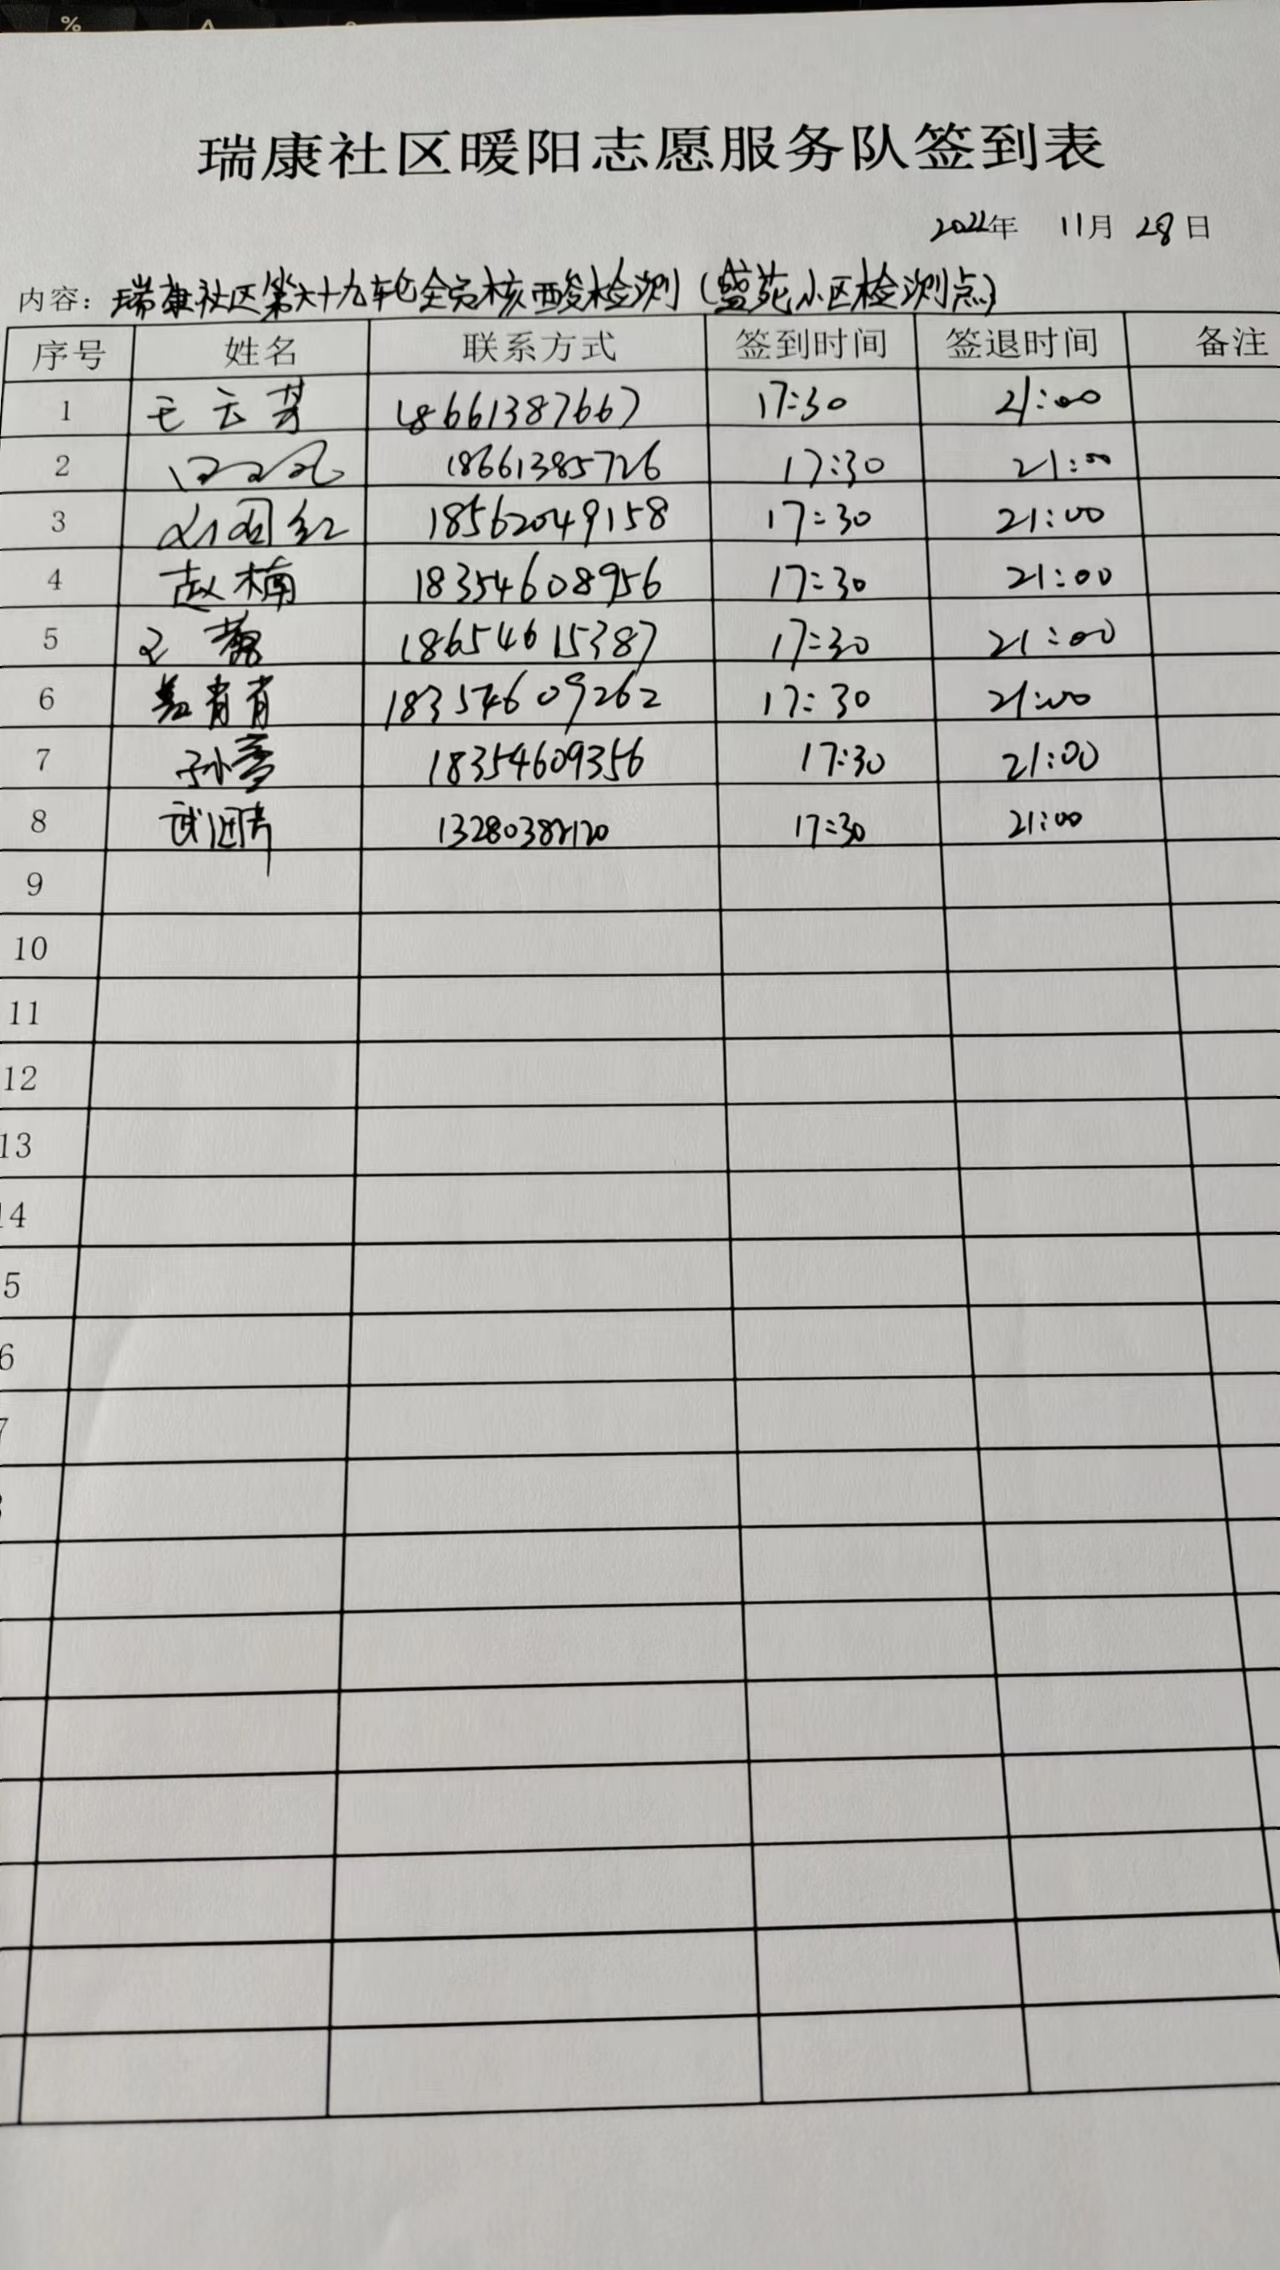 %
瑞康社区暖阳志愿服务队签到表
2022年 11月 28日
内容：瑞康社区第六十九轮全员核酸检测（盛苑小区检测点）
序号 姓名 联系方式 签到时间 签退时间 备注
1 王云芳 18661387667 17:30 21:00
2 18661385726 17:30 21:00
3 刘国红 18562049158 17:30 21:00
4 赵楠 18354608956 17:30 21:00
5 王 18654615387 17:30 21:00
6 盖肖肖 18354609262 17:30 21:00
7 孙雪 18354609356 17:30 21:00
8 武 17:30 21:00
9
10
11
12
13
14
5
6
7